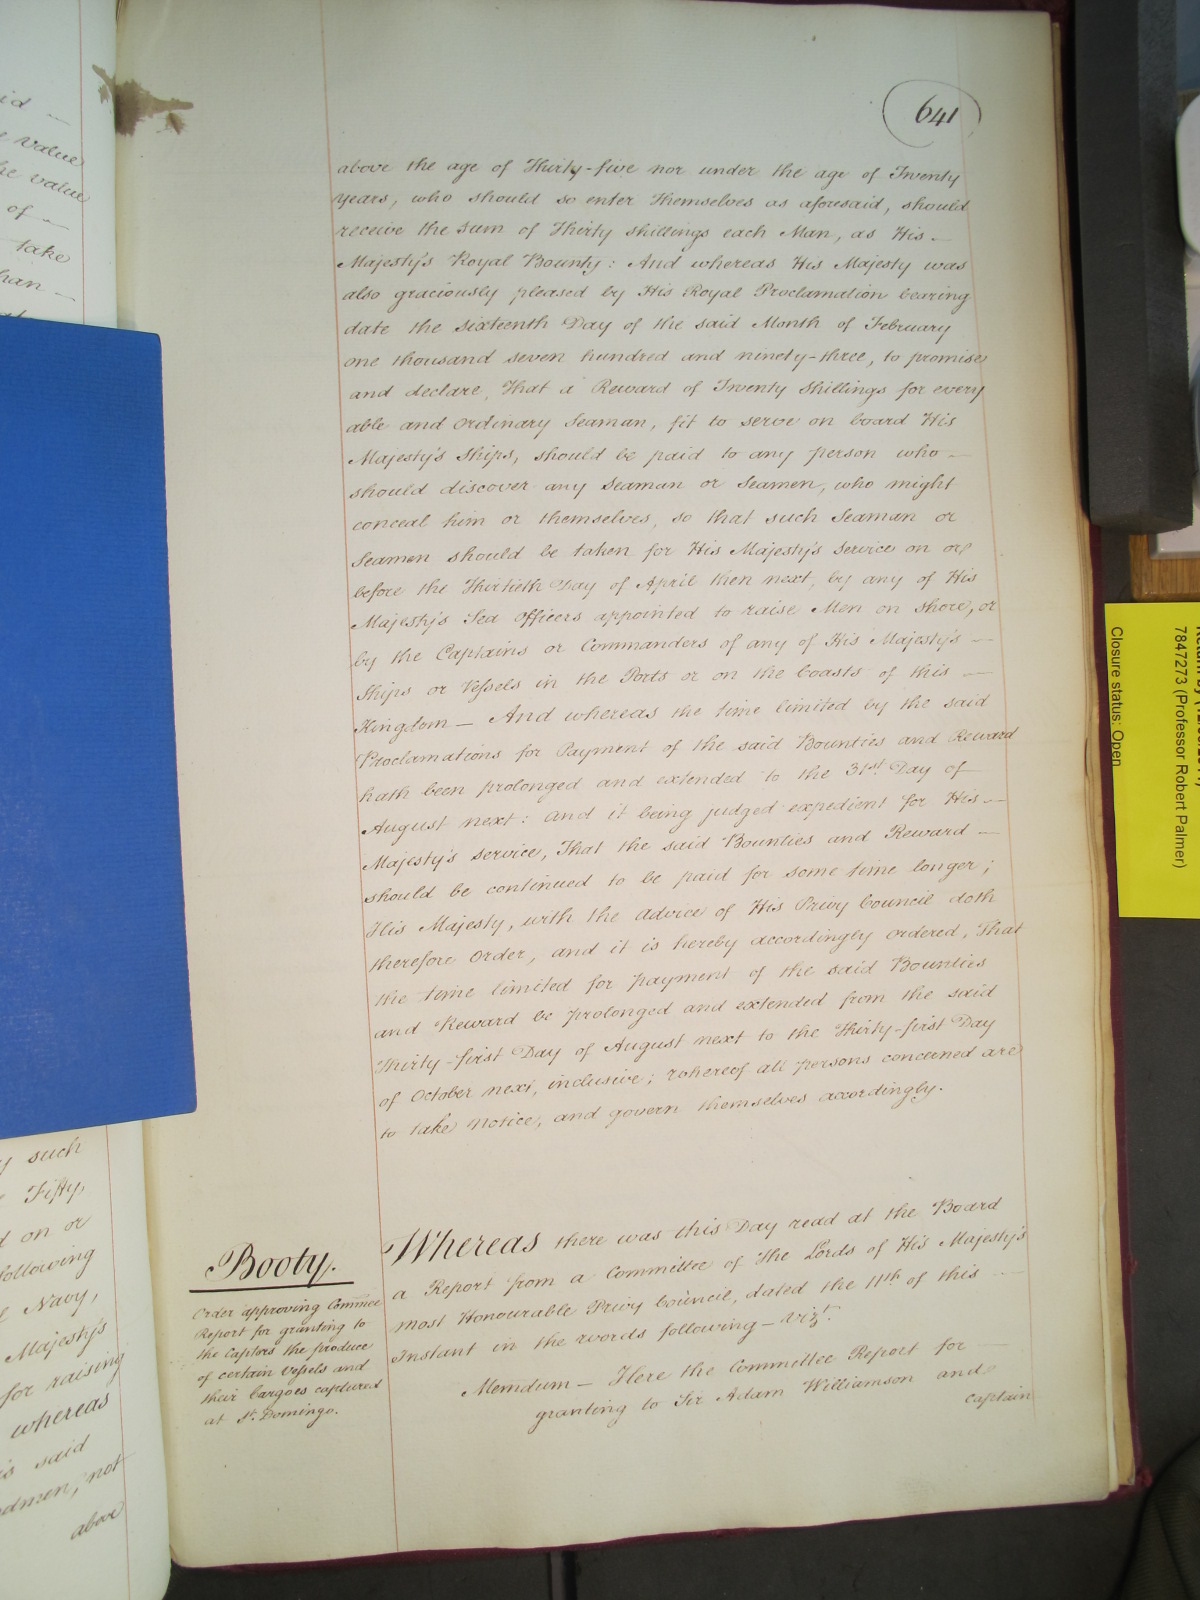 641
above the age of Thirty-five nor under the age of Twenty
years, who should so enter themselves as aforesaid, should
receive the sum of Thirty shillings each Man, as His
Majesty's Royal Bounty: And whereas His Majesty was
also graciously pleased by His Royal Proclamation bearing
date the sixteenth Day of the said Month of February
one thousand seven hundred and ninety-three, to promise
and declare, That a Reward of Twenty Shillings for every
able and Ordinary Seaman, fit to serve on board His
Majesty's Ships, should be paid to any person who
should discover any Seaman or Seamen, who might
conceal him or themselves, so that such Seaman or
Seamen should be taken for His Majesty's Service on or
before the Thirtieth Day of April then next, by any of His
Majesty's Sea Officers appointed to raise Men on shore, or
by the Captains or Commanders of any of His Majesty's
Ships or Vessels in the Ports or on the Coasts of this
Kingdom — And whereas the time limited by the said
Proclamations for Payment of the said Bounties and Reward
hath been prolonged and extended to the 31st Day of
August next: and it being judged expedient for His
Majesty's service, That the said Bounties and Reward
should be continued to be paid for some time longer;
His Majesty, with the Advice of His Privy Council doth
therefore Order, and it is hereby accordingly ordered, That
the time limited for payment of the said Bounties
and Reward be prolonged and extended from the said
Thirty-first Day of August next to the Thirty-first Day
of October next, inclusive; whereof all persons concerned are
to take Notice, and govern themselves accordingly.
Booty.
Order approving Commee
Report for granting to
the Captors the produce
of certain Vessels and
their Cargoes captured
at St. Domingo.
Whereas there was this Day read at the Board
a Report from a Committee of the Lords of His Majesty's
most Honourable Privy Council, dated the 11th of this
Instant in the words following — Vizt.
Memdum — Here the Committee Report for
granting to Sir Adam Williamson and
Captain
id
value
he value
of
take
han
y such
Fifty,
d on or
following
Navy,
Majesty's
for raising
whereas
said
dmen, not
above
7847273 (Professor Robert Palmer)
Closure status: Open